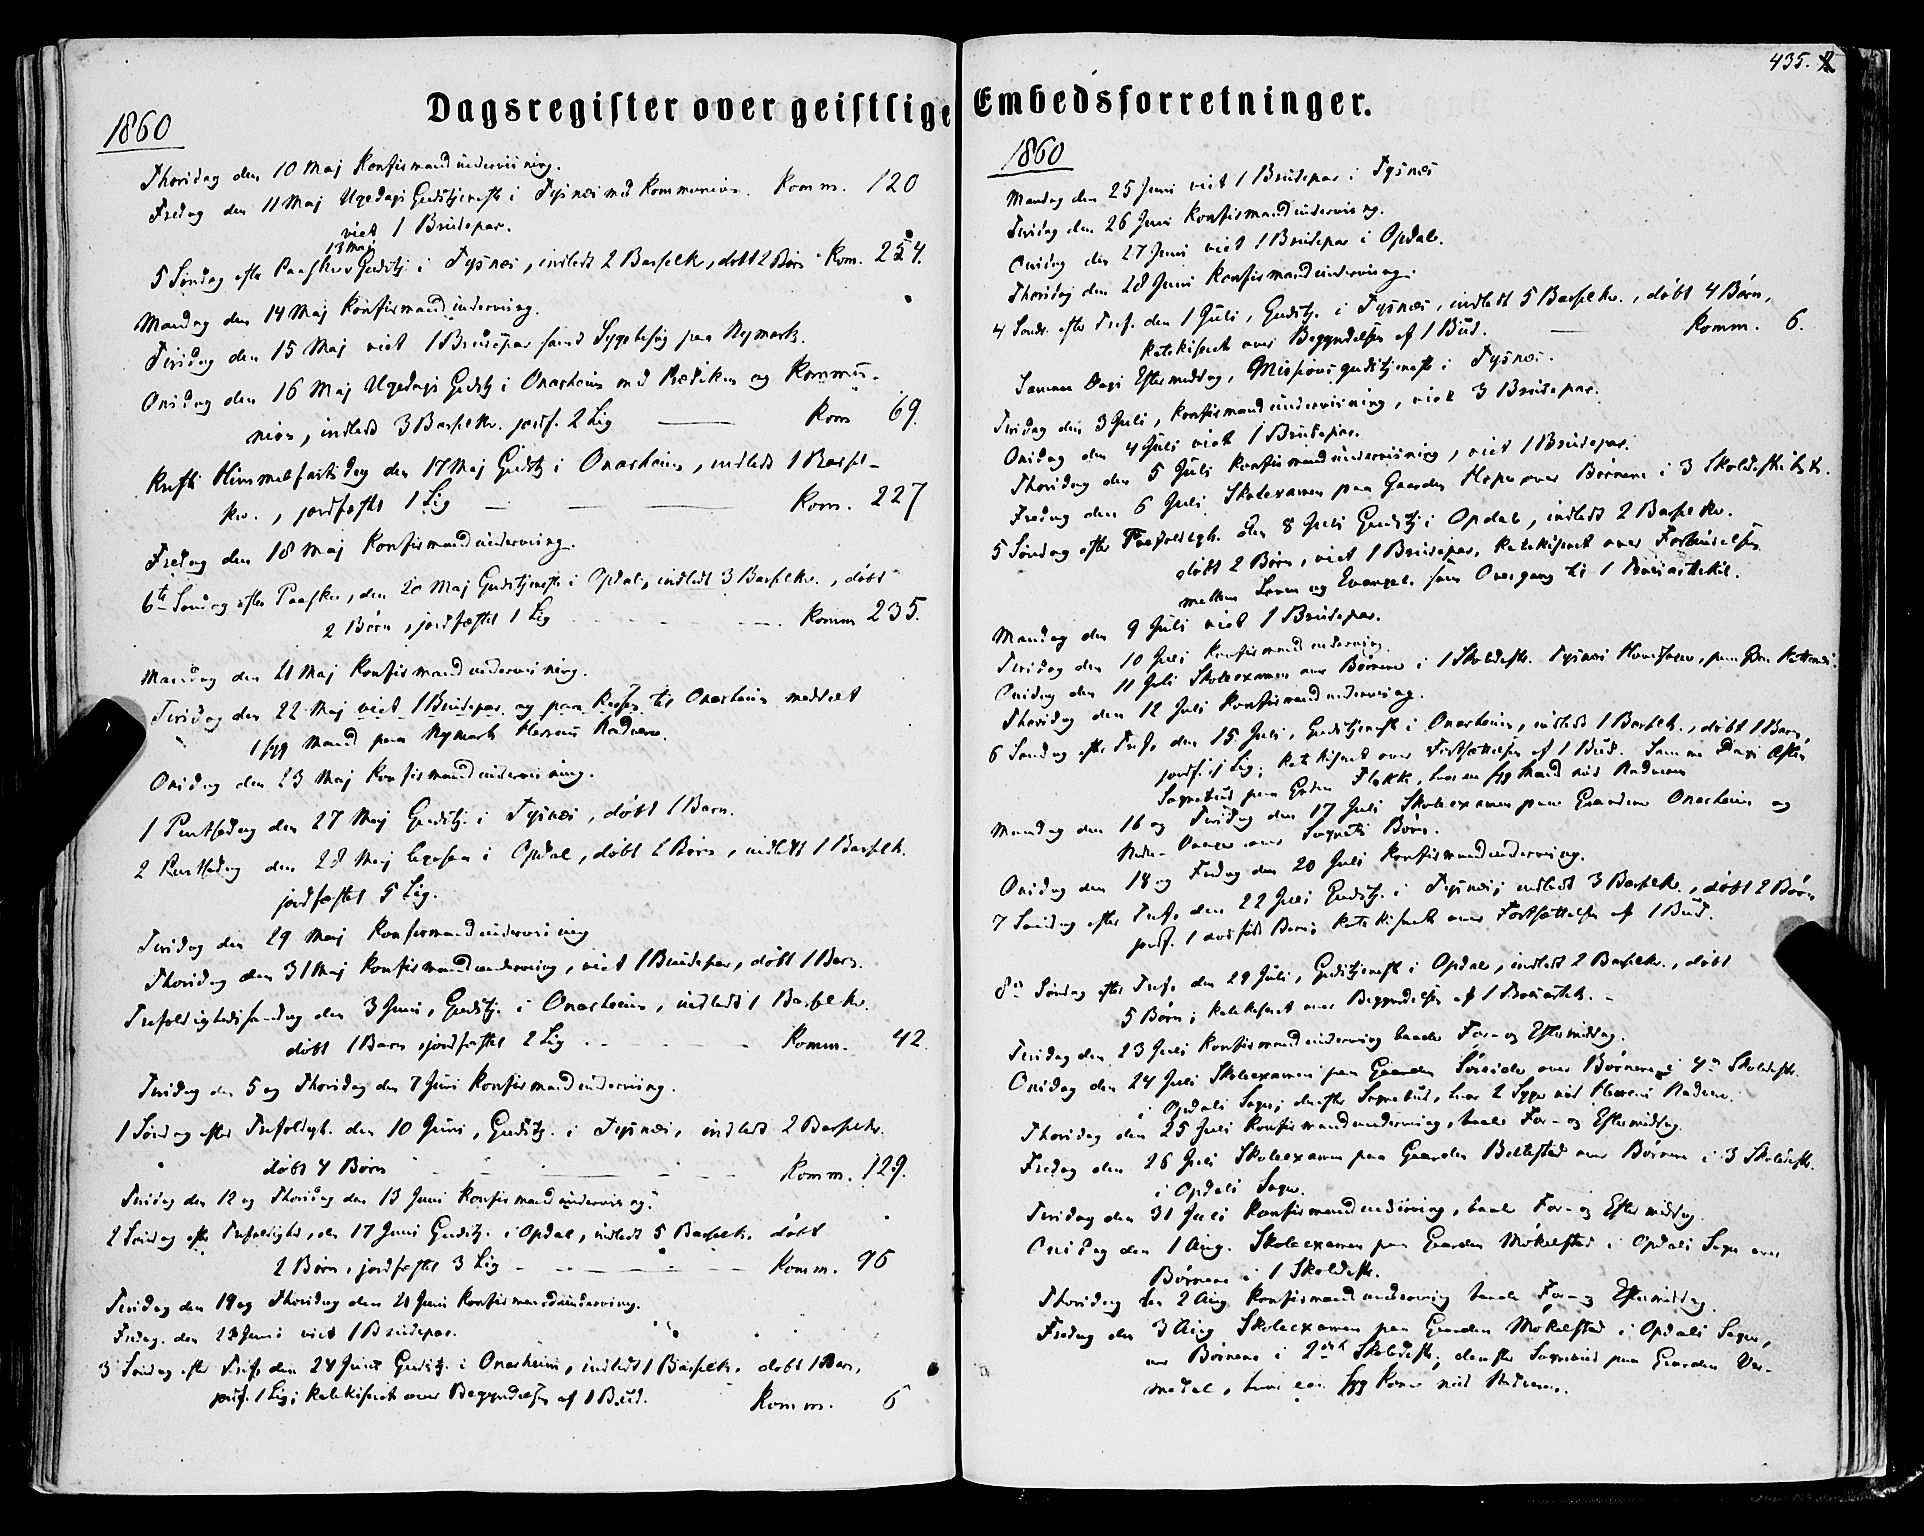 Dagsregister over geistlige Embedsforretninger.
435.
1860
Thorsdag den 10 Maj Konfirmandundervisning.
Fredag den 11 Maj Ugedags Gudstjeneste i Tysnæs med Kommunion. Komm. 120
viet 1 Brudepar.
13 Maj
5 Søndag efter Paaske Gudstj. i Tysnæs, indledt 2 Barselk., døbt 2 Børn Kom. 254.
Mandag den 14 Maj Konfirmandundervisning.
Tirsdag den 15 Maj viet 1 Brudepar samt Sygebesøg paa Nymark.
Onsdag den 16 Maj Ugedags Gudstj. i Onarheim med Prædiken og Kommu-
nion, indledt 3 Barselkv. jordf. 2 Lig Kom 69.
Kristi Himmelfartsdag den 17 Maj Gudstj. i Onarheim, indledt 1 Barsel-
kv., jordfæstet 1 Lig Kom. 227
Fredag den 18 Maj Konfirmandundervisning.
6te Søndag efter Paaske, den 20 Maj Gudstjeneste i Opdal, indledt 3 Barselkv., døbt
2 Børn, jordfæstet 1 Lig Komm 235.
Mandag den 21 Maj Konfirmandundervisning.
Tirsdag den 22 Maj viet 1 Brudepar og paa Reisen til Onarheim meddelt
1 syg Mand paa Nymark Herrens Nadvere.
Onsdag den 23 Maj Konfirmandundervisning.
1 Pintsedag den 27 Maj Gudstj. i Tysnæs, døbt 1 Barn.
2 Pintsedag den 28 Maj ligesaa i Opdal, døbt 2 Børn, indledt 1 Barselk.
jordfæstet 5 Lig.
Tirsdag den 29 Maj Konfirmandundervisning
Thorsdag den 31 Maj Konfirmandundervisning, viet 1 Brudepar, døbt 1 Barn.
Trefoldighedssøndag den 3 Juni, Gudstj. i Onarheim, indledt 1 Barselkv.
døbt 1 Barn, jordfæstet 2 Lig Komm. 42.
Tirsdag den 5 og Thorsdag den 7 Juni Konfirmandundervisning.
1 Søndag efter Trefoldigh. den 10 Juni, Gudstj. i Tysnæs, indledt 2 Barselkv.
døbt 4 Børn Komm. 129.
Tirsdag den 12 og Thorsdag den 13 Juni Konfirmandundervisning.
2 Søndag efter Trefoldighed, den 17 Juni Gudstj. i Opdal, indledt 5 Barselk. døbt
2 Børn, jordfæstet 3 Lig Komm. 96
Tirsdag den 19 og Thorsdag den 21 Juni Konfirmandundervisning.
Fredag den 23 Juni viet 1 Brudepar.
3 Søndag efter Tref. den 24 Juni Gudstj. i Onarheim, indledt 1 Barselk. døbt 1 Barn,
jordf. 1 Lig; katekiseret over Begyndelsen af 1 Bud. Komm. 6
1860
Mandag den 25 Juni viet 1 Brudepar i Tysnæs
Tirsdag den 26 Juni Konfirmandundervisning.
Onsdag den 27 Juni viet 1 Brudepar i Opdal.
Thorsdag den 28 Juni Konfirmandundervisning.
4 Sønd. efter Tref. den 1 Juli, Gudstj. i Tysnæs, indledt 5 Barselkv., døbt 4 Børn,
katekiseret over Begyndelsen af 1 Bud. Komm. 6.
Samme Dags Eftermiddag, Missionsgudstjeneste i Tysnæs.
Tirsdag den 3 Juli, Konfirmandundervisning, viet 3 Brudepar.
Onsdag den 4 Juli viet 1 Brudepar.
Thorsdag den 5 Juli Konfirmandundervisning, viet 1 Brudepar.
Fredag den 6 Juli Skoleexamen paa Gaarden Hope over Børnene i 3 Skoledistrikt.
5 Søndag efter Trefoldigh. den 8 Juli Gudstj. i Opdal, indledt 2 Barselkv.
døbt 2 Børn, viet 1 Brudepar, katekiseret over Forbindelsen
mellem Loven og Evangel. som Overgang til 1 Trosartikel.
Mandag den 9 Juli viet 1 Brudepar.
Tirsdag den 10 Juli Konfirmandundervisning.
Onsdag den 11 Juli Skoleexamen over Børnene i 1 Skoledistr. Tysnæs Hovedsogn, paa
Thorsdag den 12 Juli Konfirmandundervisning.
6 Søndag efter Tref. den 15 Juli, Gudstjeneste i Onarheim, indledt 1 Barselk., døbt 1 Barn,
jordf. 1 Lig; katekiseret over Fortsættelsen af 1 Bud. Samme Dags Efterm.
Sognebud paa Flakke, hos en syg Mand med Nadveren
Mandag den 16 og Tirsdag den 17 Juli Skoleexamen paa Gaardene Onarheim og
over Sognets Børn.
Onsdag den 18 og Fredag den 20 Juli Konfirmandundervisning.
7 Søndag efter Tref. den 22 Juli Gudstj. i Tysnæs, indledt 3 Barselkv., døbt 2 Børn
jordf. 1 dødfødt Barn; katekiseret over Fortsættelsen af 1 Bud.
8de Søndag efter Tref. den 29 Juli, Gudstjeneste i Opdal, indledt 2 Barselkv., døbt
5 Børn; katekiseret over Begyndelsen af 1 Trosartik.
Tirsdag den 23 Juli Konfirmandundervisning baade For- og Eftermiddag.
Onsdag den 24 Juli Skoleexamen paa Gaarden Søreide over Børnene i 4de Skoledistr.
i Opdals Sogn; derefter Sognebud, hos 2 Syge med Herrens Nadvere.
Thorsdag den 25 Juli Konfirmandundervisning, baade For- og Eftermiddag.
Fredag den 26 Juli Skoleexamen paa Gaarden over Børnene i 3 Skoledistr.
i Opdals Sogn.
Tirsdag den 31 Juli Konfirmandundervisning, baade For- og Eftermiddag.
Onsdag den 1 Aug. Skoleexamen paa Gaarden Møkelstad i Opdals Sogn over
Børnene i 1 Skoledistr.
Thorsdag den 2 Aug Konfirmandundervisning baade For- og Eftermiddag.
Fredag den 3 Aug Skoleexamen paa Gaarden Møkelstad i Opdals Sogn,
over Børnene i 2det Skoledistr; derefter Sognebud paa Gaarden
hos en syg Kone med Nadveren.